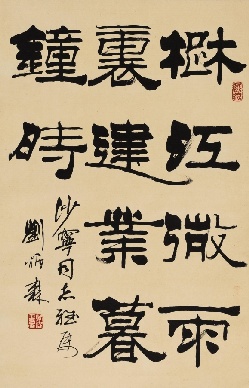 楚江微雨
裏建業暮
鐘時
沙寧同志雅属
劉炳森